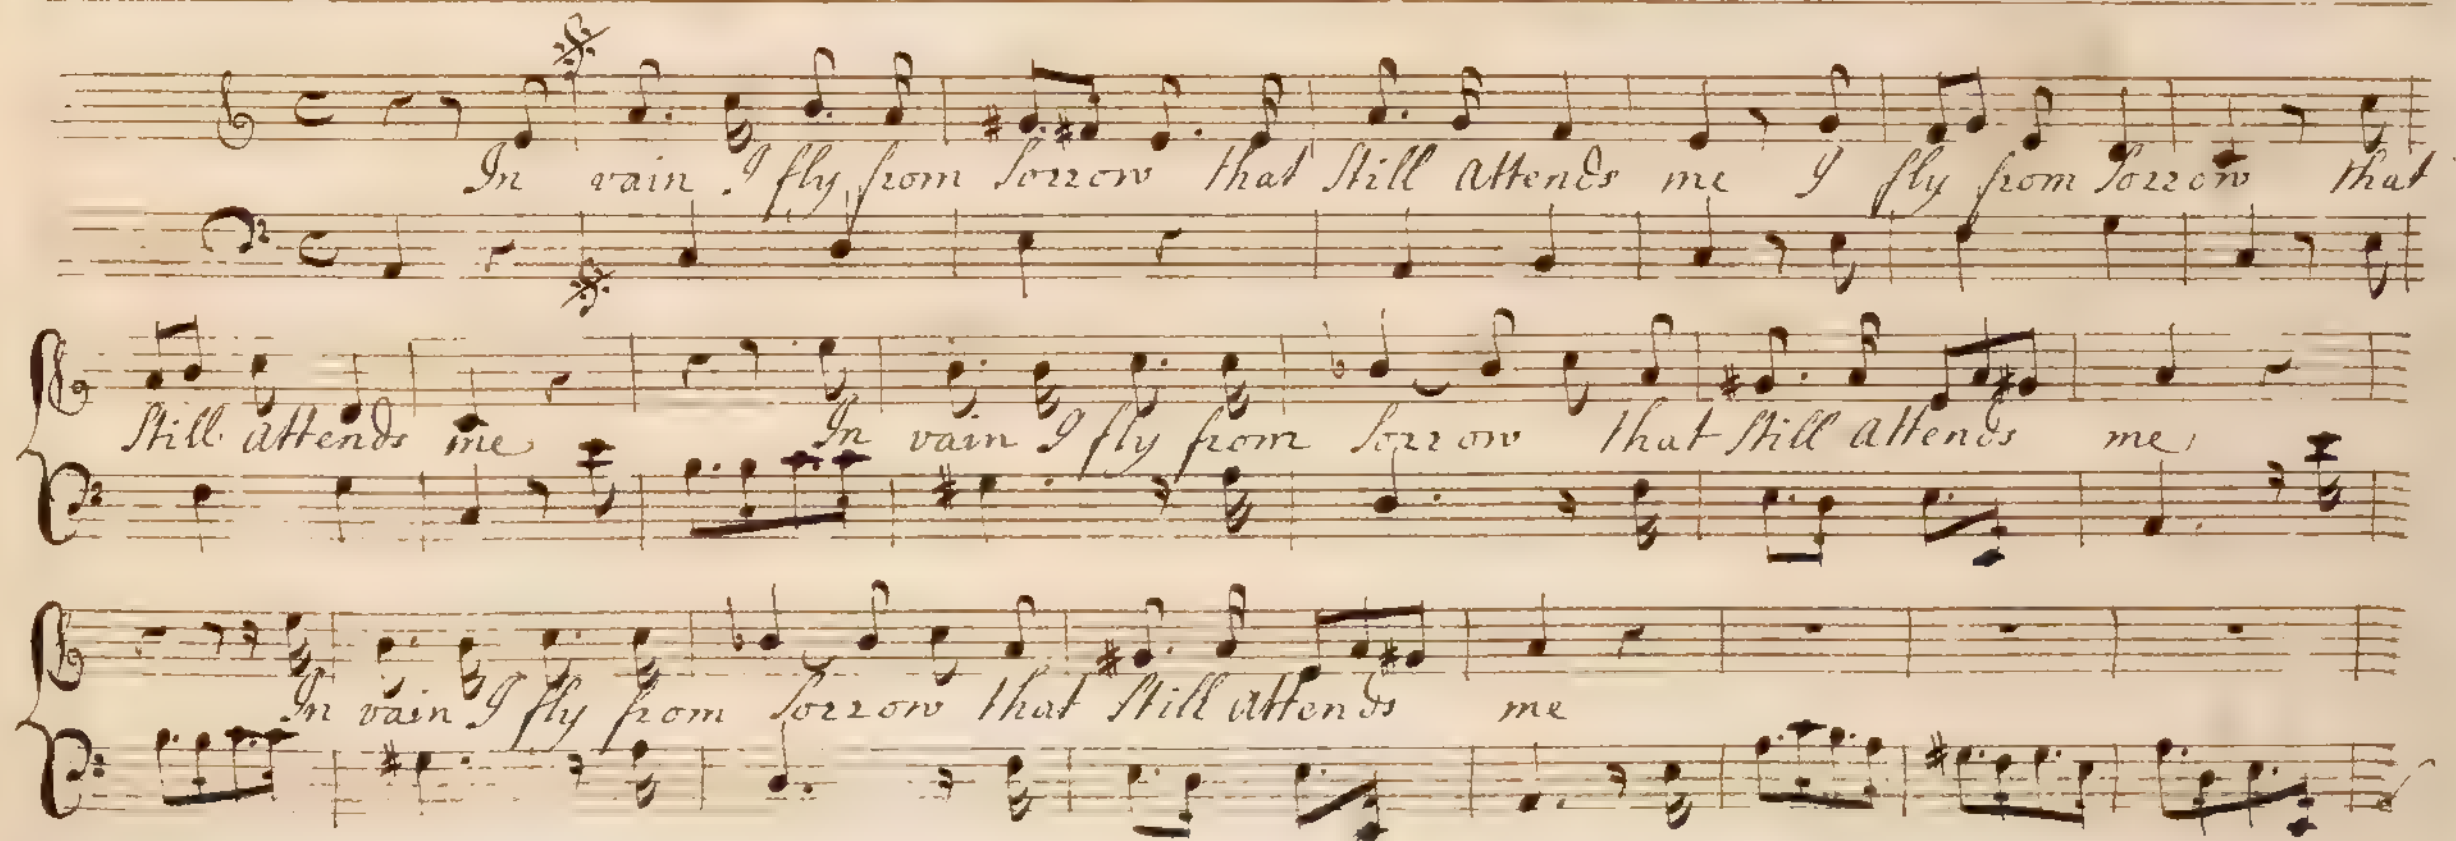 In vain I fly from Sorrow that Still Attends me I fly from Sorrow that
Still attends me In vain I fly from Sorrow that Still Attends me
In vain I fly from Sorrow that Still Attends me